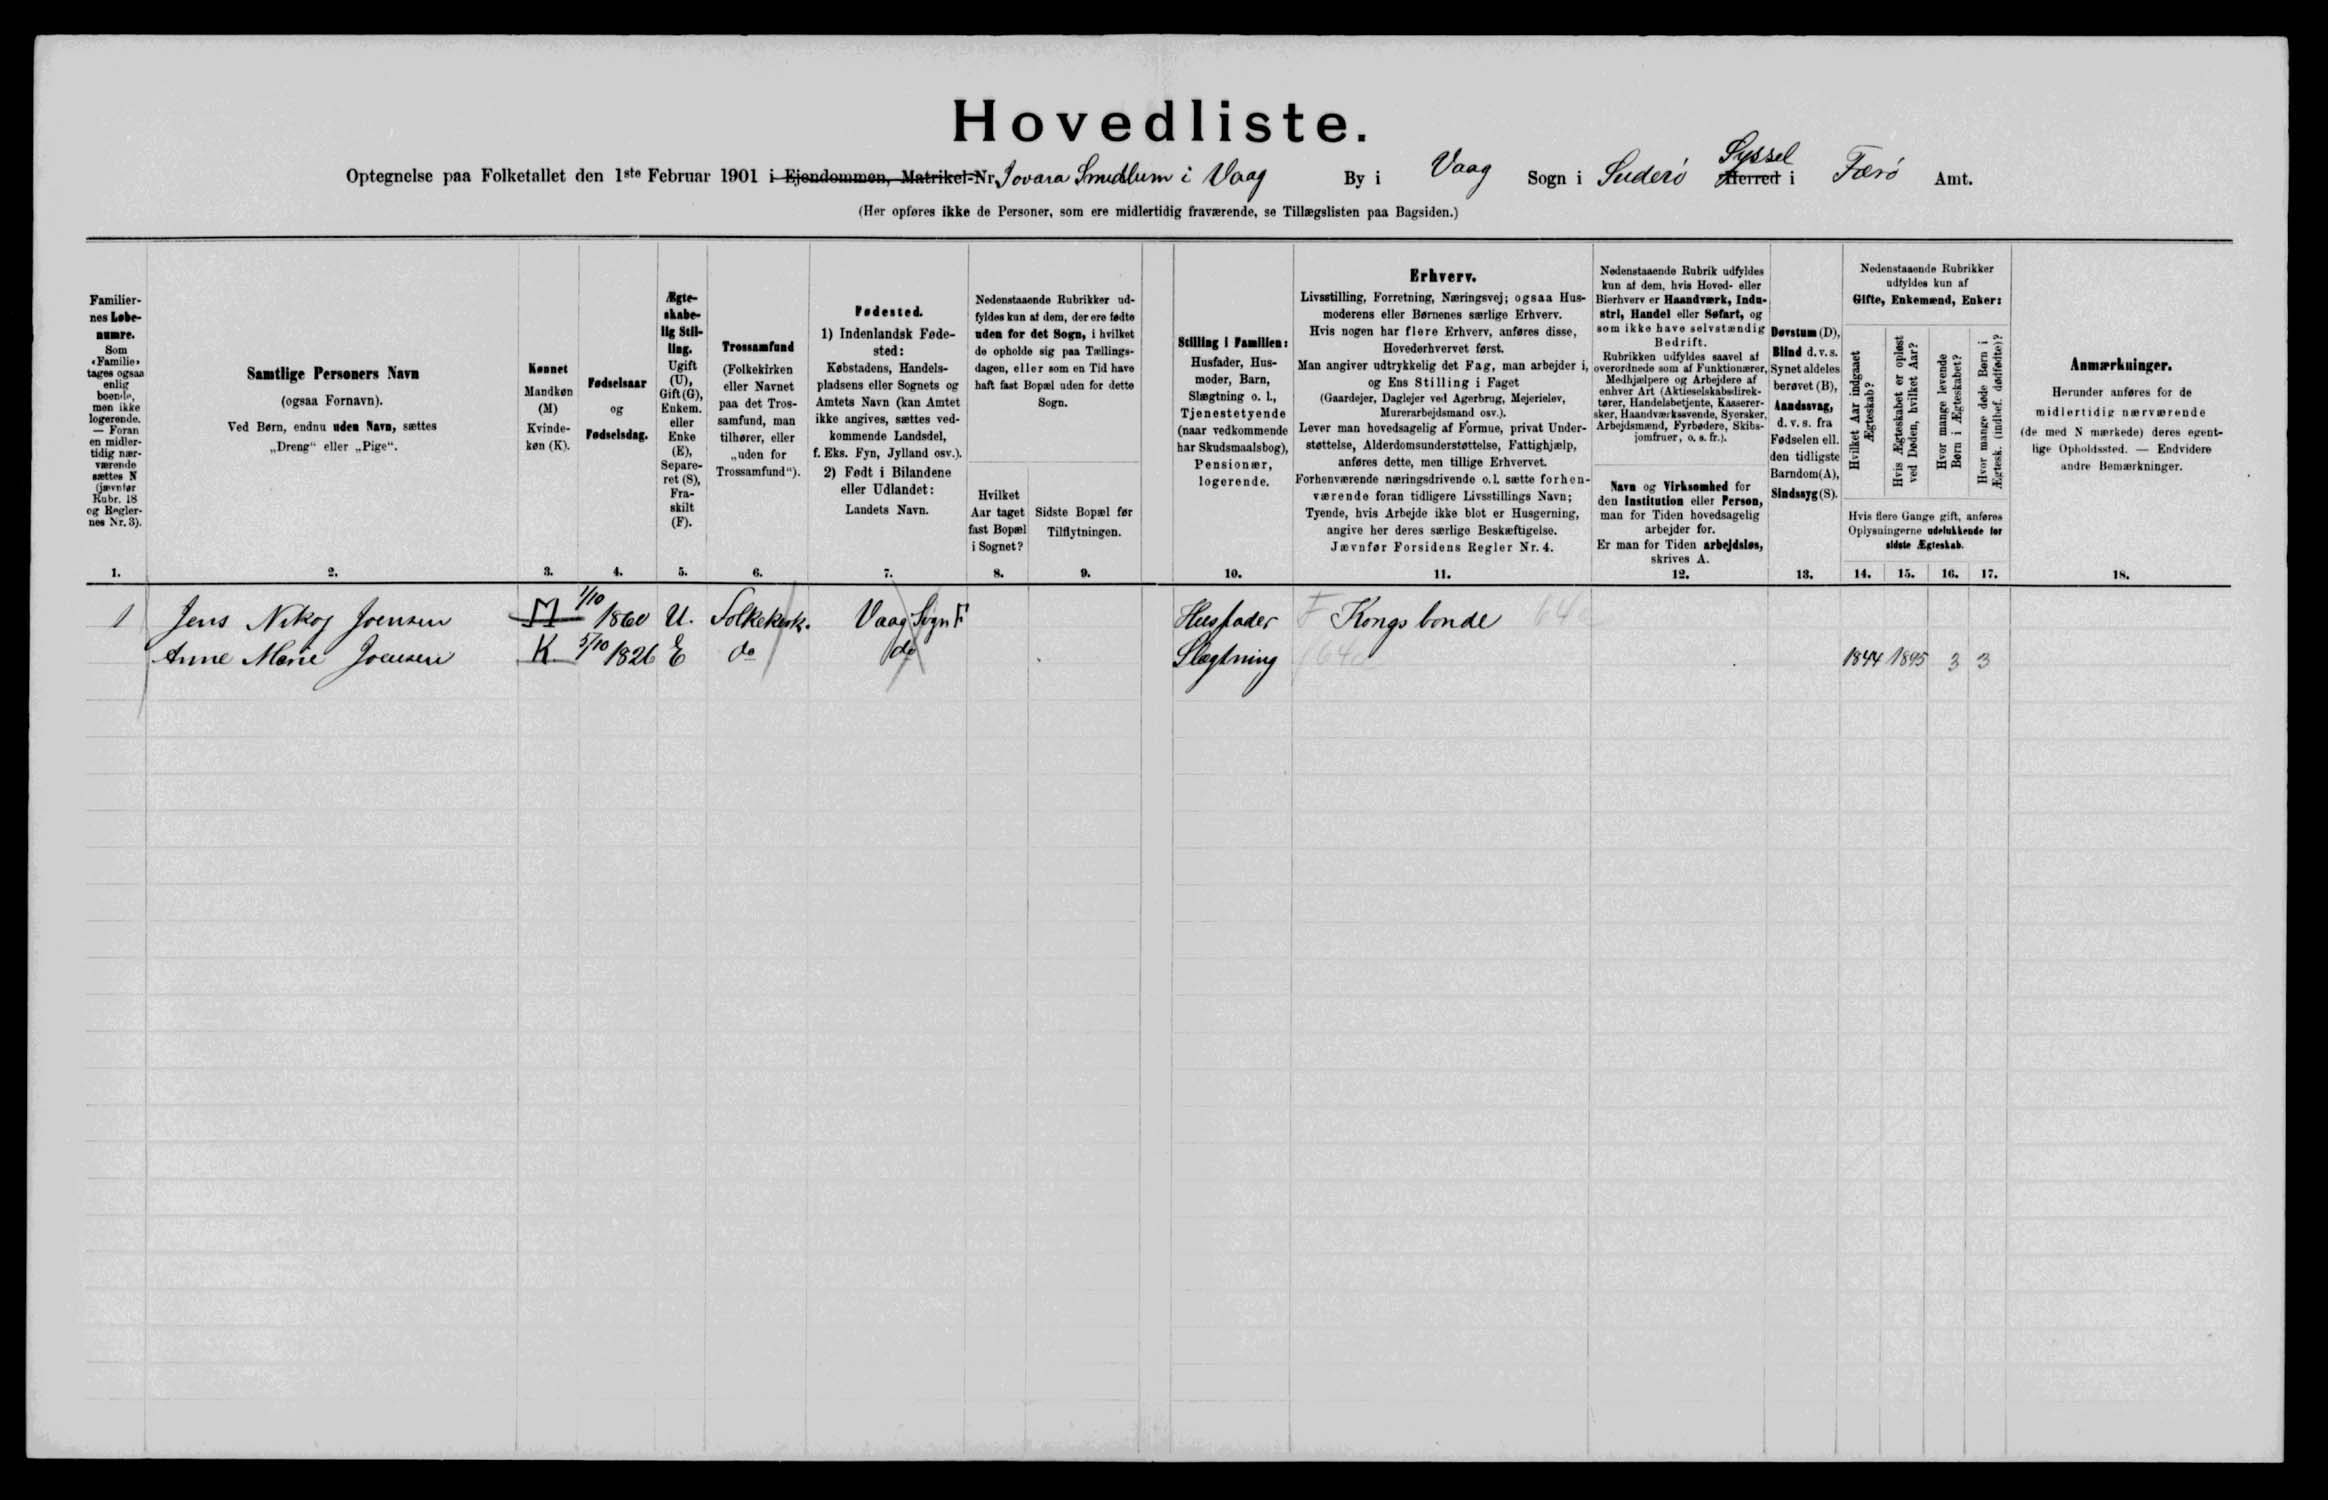 Hovedliste.
Syssel
Optegnelse paa Folketallet den 1ste Februar 1901 i Ejendommen, Matrikel-Nr. i Vaag By i Vaag Sogn i Suderö Herred i Færö Amt.
(Her opføres ikke de Personer, som ere midlertidig fraværende, se Tillægslisten paa Bagsiden.)
Familier-
nes Løbe-
numre.
Som
«Familie»
tages ogsaa
enlig
boende,
men ikke
logerende.
— Foran
en midler-
tidig nær-
værende
sættes N
(jævnfør
Rubr. 18
og Regler-
nes Nr. 3).
1.
Samtlige Personers Navn
(ogsaa Fornavn).
Ved Børn, endnu uden Navn, sættes
„Dreng“ eller „Pige“.
2.
Kønnet
Mandkøn
(M)
Kvinde-
køn (K).
3.
Fødselsaar
og
Fødselsdag.
4.
Ægte-
skabe-
lig Stil-
ling.
Ugift
(U),
Gift (G),
Enkem.
eller
Enke
(E),
Separe-
ret (S),
Fra-
skilt
(F).
5.
Trossamfund
(Folkekirken
eller Navnet
paa det Tros-
samfund, man
tilhører, eller
„uden for
Trossamfund“).
6.
Fødested.
1) Indenlandsk Føde-
sted:
Købstadens, Handels-
pladsens eller Sognets og
Amtets Navn (kan Amtet
ikke angives, sættes ved-
kommende Landsdel,
f. Eks. Fyn, Jylland osv.).
2) Født i Bilandene
eller Udlandet:
Landets Navn.
7.
Nedenstaaende Rubrikker ud-
fyldes kun af dem, der ere fødte
uden for det Sogn, i hvilket
de opholde sig paa Tællings-
dagen, eller som en Tid have
haft fast Bopæl uden for dette
Sogn.
Hvilket
Aar taget
fast Bopæl
i Sognet?
8.
Sidste Bopæl før
Tilflytningen.
9.
Stilling i Familien:
Husfader, Hus-
moder, Barn,
Slægtning o. l.,
Tjenestetyende
(naar vedkommende
har Skudsmaalsbog),
Pensionær,
logerende.
10.
Erhverv.
Livsstilling, Forretning, Næringsvej; ogsaa Hus-
moderens eller Børnenes særlige Erhverv.
Hvis nogen har flere Erhverv, anføres disse,
Hovederhvervet først.
Man angiver udtrykkelig det Fag, man arbejder i,
og Ens Stilling i Faget
(Gaardejer, Daglejer ved Agerbrug, Mejerielev,
Murerarbejdsmand osv.).
Lever man hovedsagelig af Formue, privat Under-
støttelse, Alderdomsunderstøttelse, Fattighjælp,
anføres dette, men tillige Erhvervet.
Forhenværende næringsdrivende o. l. sætte forhen-
værende foran tidligere Livsstillings Navn;
Tyende, hvis Arbejde ikke blot er Husgerning,
angive her deres særlige Beskæftigelse.
Jævnfør Forsidens Regler Nr. 4.
11.
Nedenstaaende Rubrik udfyldes
kun af dem, hvis Hoved- eller
Bierhverv er Haandværk, Indu-
stri, Handel eller Søfart, og
som ikke have selvstændig
Bedrift.
Rubrikken udfyldes saavel af
overordnede som af Funktionærer,
Medhjælpere og Arbejdere af
enhver Art (Aktieselskabsdirek-
tører, Handelsbetjente, Kasserer-
sker, Haandværkssvende, Syersker,
Arbejdsmænd, Fyrbødere, Skibs-
jomfruer, o. s. fr.).
Navn og Virksomhed for
den Institution eller Person,
man for Tiden hovedsagelig
arbejder for.
Er man for Tiden arbejdsløs,
skrives A.
12.
Døvstum (D),
Blind d. v. s.
Synet aldeles
berøvet (B),
Aandssvag,
d. v. s. fra
Fødselen ell.
den tidligste
Barndom (A),
Sindssyg (S).
13.
Nedenstaaende Rubrikker
udfyldes kun af
Gifte, Enkemænd, Enker:
Hvilket Aar indgaaet
Ægteskab?
Hvis Ægteskabet er opløst
ved Døden, hvilket Aar?
Hvor mange levende
Børn i Ægteskabet?
Hvor mange døde Børn i
Ægtesk. (indbef. dødfødte)?
Hvis flere Gange gift, anføres
Oplysningerne udelukkende for
sidste Ægteskab.
14. 15. 16. 17.
Anmærkninger.
Herunder anføres for de
midlertidig nærværende
(de med N mærkede) deres egent-
lige Opholdssted. — Endvidere
andre Bemærkninger.
18.
1 Jens Joensen M 1/10 1860 U. Folkekirk. Vaag Sogn F Husfader F Kongsbonde
Anne Marie Joensen K 5/10 1826 E do do Slægtning 1844 1895 3 3